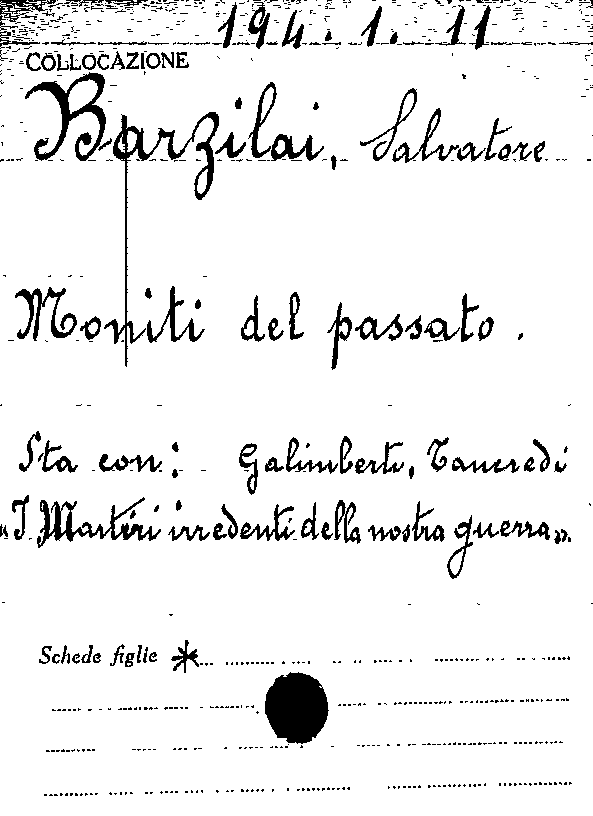 194. 1. 11
COLLOCAZIONE
Barzilai, Salvatore
Moniti del passato.
Sta con: Galimberti, Tancredi
«I Martiri irredenti della nostra guerra».
Schede figlie *